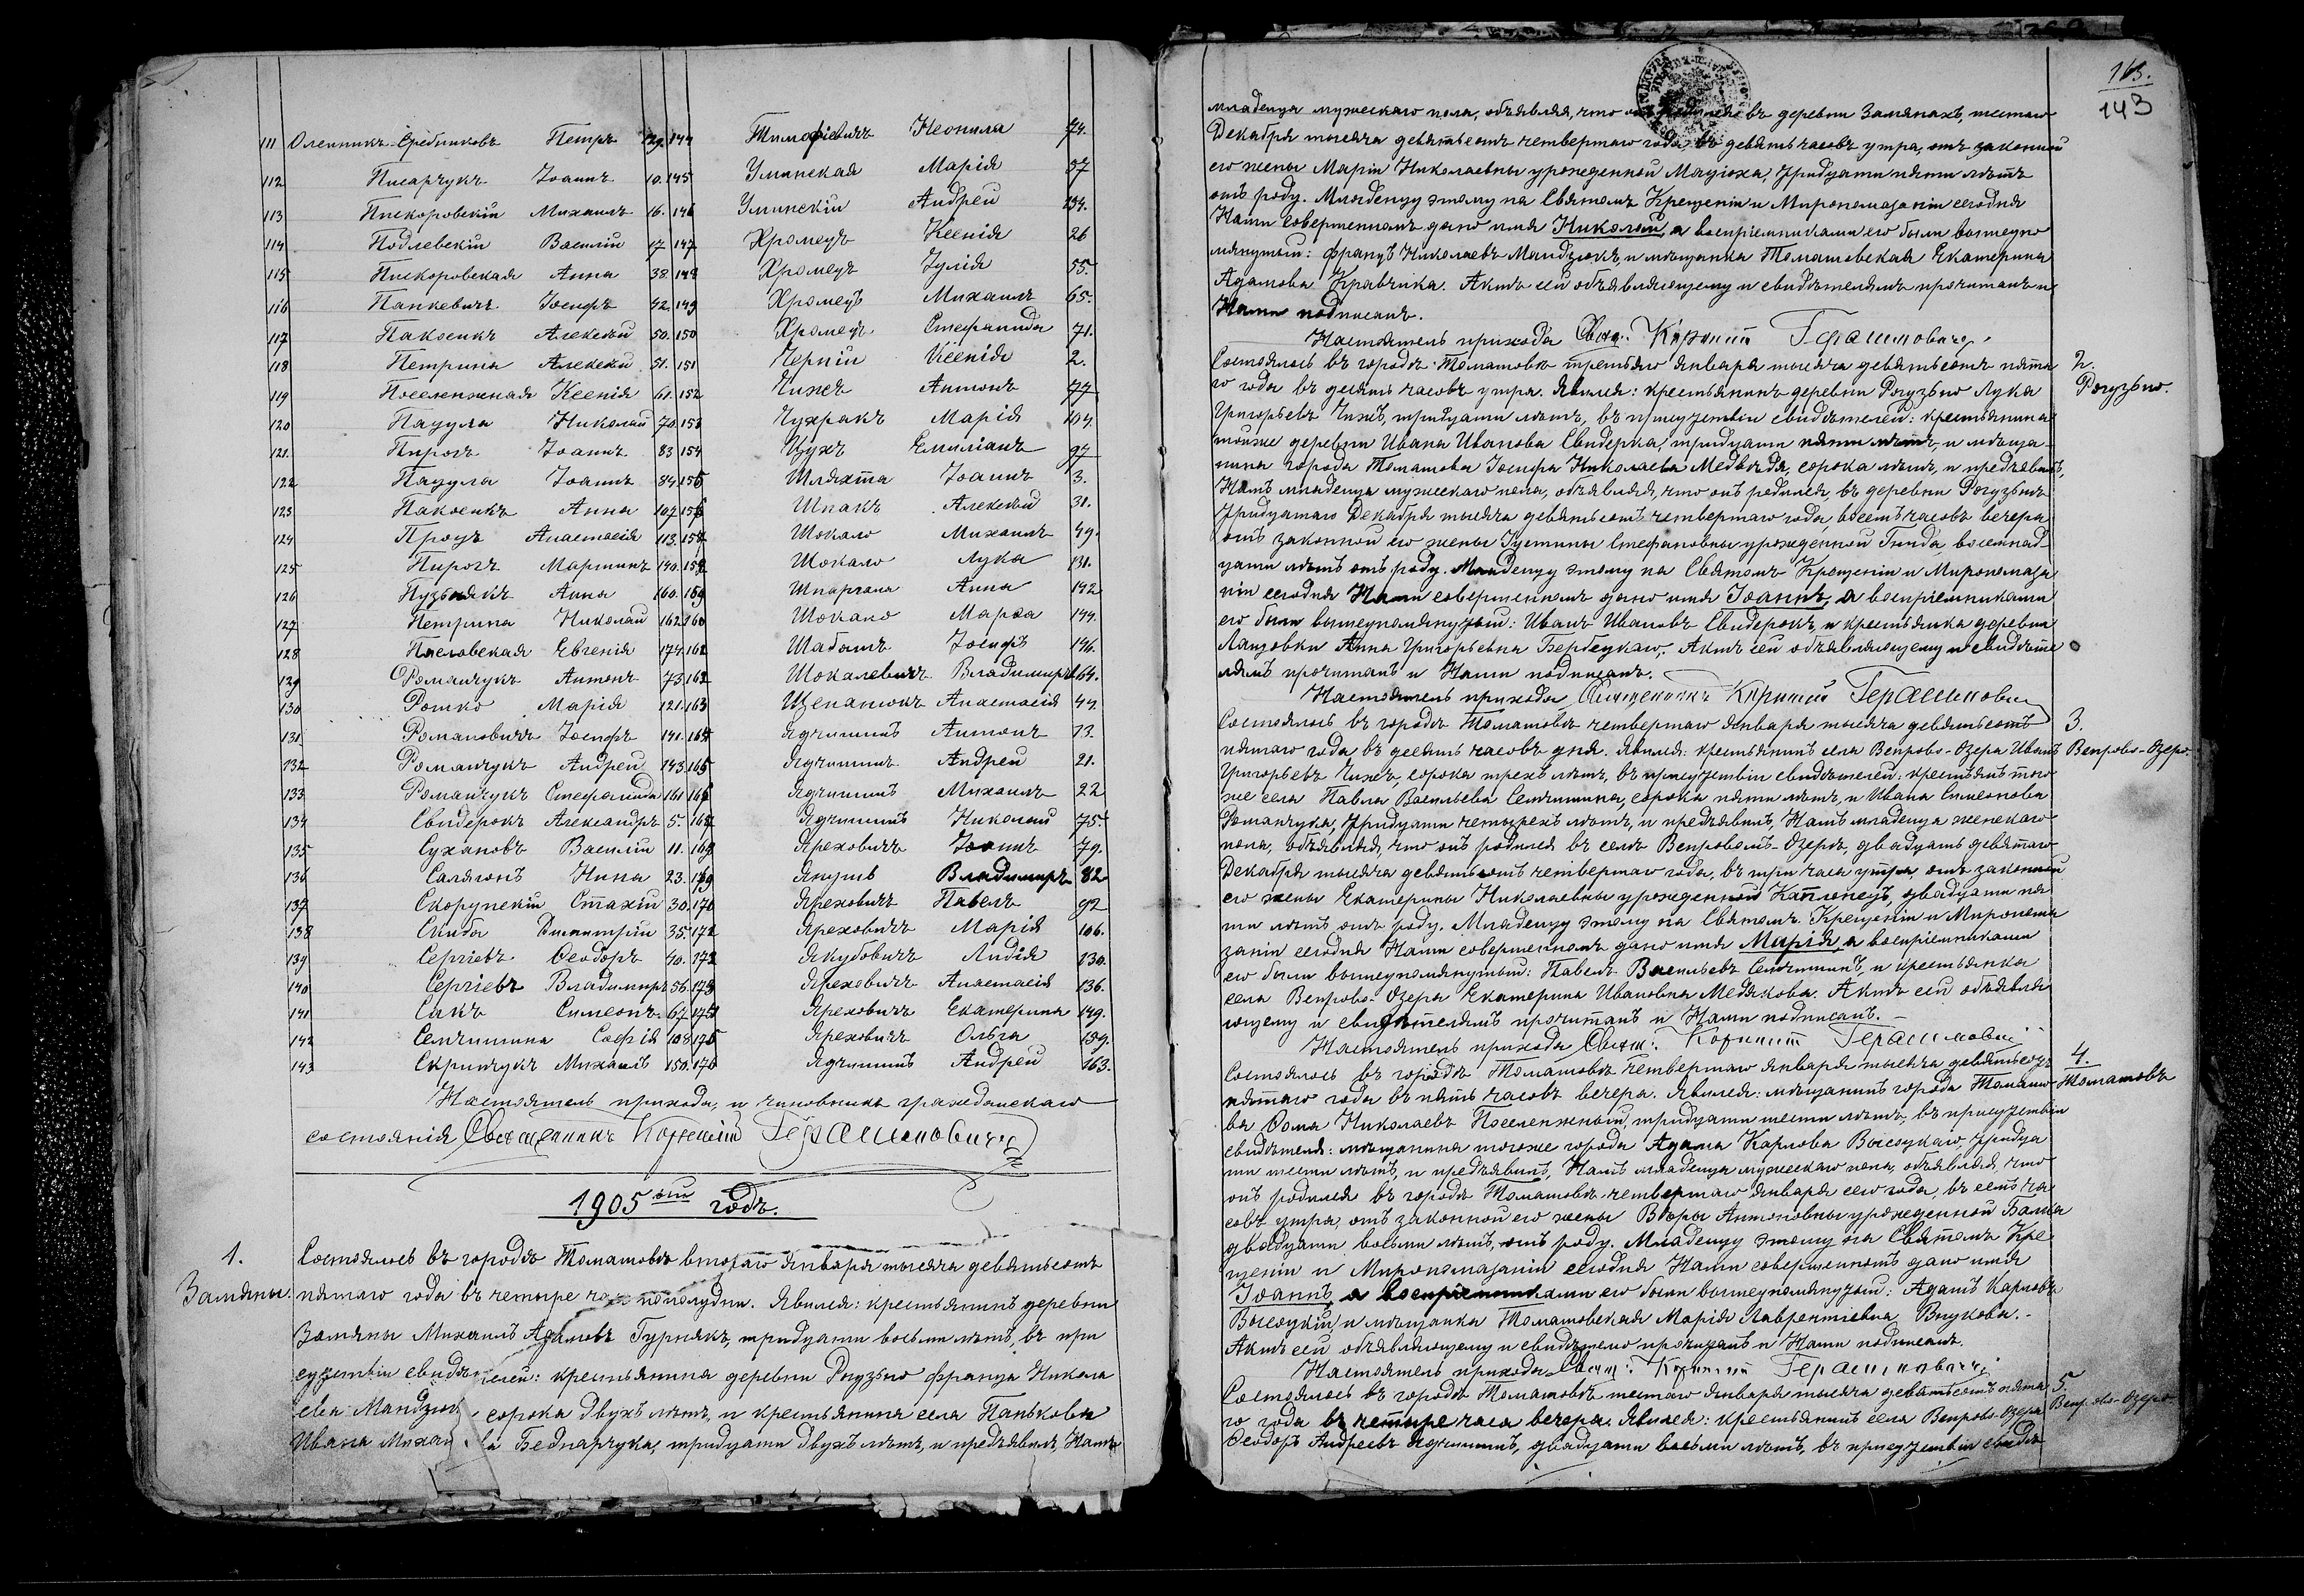 111 Олейникъ-Средниковъ Петръ 129. 144 Тимофіевичъ Неонила 74.
112 Писарчукъ Іоаннъ 10. 145 Уминская Марія 37
113 Пискоровскій Михаилъ 16. 146 Уминскій Андрей 134.
114 Подлевскій Василій 17 147 Хромецъ Ксенія 26
115 Пискоровская Анна 38. 148 Хромецъ Іулія 55.
116 Панкевичъ Іосифъ 42. 149 Хромецъ Михаилъ 65.
117 Пакосикъ Алексѣй 50. 150 Хромецъ Стефанида 71.
118 Петрина Алексѣй 51. 151 Черній Ксенія 2.
119 Поселенжная Ксенія 61. 152 Чижъ Антонъ 77
120 Пацула Николай 70. 153 Чухракъ Марія 104.
121. Пирогъ Іоаннъ 83 154 Цухъ Емиліанъ 97
122 Пацула Іоаннъ 84. 155 Шляхта Іоаннъ 3.
123 Пакосикъ Анна 107 156 Шпакъ Алексѣй 31.
124 Процъ Анастасія 113. 157 Шокало Михаилъ 49.
125 Пирогъ Мартинъ 140. 158 Шокало Лука 131.
126 Пузьнякъ Анна 160. 159 Шпаргала Анна 142
127 Петрина Николай 162 160 Шокало Марѳа 144.
128 Пиловская Евгенія 174. 161 Шабатъ Іосифъ 146.
129 Романчукъ Антонъ 73. 162 Шокалевичъ Владимиръ 164.
130 Рошко Марія 121. 163 Щепанюкъ Анастасія 44.
131. Романовичъ Іосифъ 141. 164 Ядчишинъ Антонъ 13.
132 Романчукъ Андрей 143. 165 Ядчишинъ Андрей 21.
133 Романчукъ Стефанида 161 166 Ядчишинъ Михаилъ 22
134 Свидерокъ Александръ 5. 167 Ядчишинъ Николай 75.
135 Сухановъ Василій 11. 168 Яреховичъ Іоаннъ 79.
136 Салягонъ Нина 23. 169 Янушъ Владимиръ 82
137 Скорупскій Стахій 30. 170 Яреховичъ Павелъ 92
138 Скиба Димитрій 35. 171 Яреховичъ Марія 106.
139 Сергіевъ Ѳеодоръ 40. 172 Якубовичъ Лидія 130.
140 Сергіевъ Владимиръ 56. 173 Яреховичъ Анастасія 136.
141 Сакъ Симеонъ 67. 174 Яреховичъ Екатерина 149.
142 Семчишина Софія 108 175 Яреховичъ Ольга 159.
143 Скринчукъ Михаилъ 150. 176 Ядчишинъ Андрей 163.
Настоятель прихода, и чиновникъ гражданскаго
состоянія Священникъ Корнилій Герасимовичъ
1905ый годъ.
1.
Замяны.
Состоялось въ городѣ Томашовѣ втораго Января тысяча девятьсотъ
пятаго года въ четыре часа пополудни. Явился: крестьянинъ деревни
Замяны Михаилъ Адамовъ Гурнякъ, тридцати восьми лѣтъ, въ при
сутствіи свидѣтелей: крестьянина деревни Рогузьно Франца Никола
ева Мандзюка, сорока двухъ лѣтъ, и крестьянина села Паньковы
Ивана Михайлова Беднарчука, тридцати двухъ лѣтъ, и предъявилъ, Намъ
163.
143
младенца мужескаго пола, объявляя, что онъ родился въ деревни Замянахъ, шестаго
Декабря тысяча девятьсотъ четвертаго года, въ девять часовъ утра, отъ законной
его жены Маріи Николаевны урожденной Мацюха, тридцати пяти лѣтъ
отъ роду. Младенцу этому на Святомъ Крещеніи и Миропомазаніи сегодня
Нами совершенномъ дано имя Николай, а воспріемниками его были вышеупо
мянутый: Францъ Николаевъ Мандзюкъ, и мѣщанка Томашовская Екатерина
Адамова Кравчика. Актъ сей объявляющему и свидѣтелямъ прочитанъ и
Нами подписанъ.
Настоятель прихода Свящ. Корнилій Герасимовичъ
2.
Рогузьно.
Состоялось въ городѣ Томашовѣ третьяго Января тысяча девятьсотъ пята
го года въ десять часовъ утра. Явился: крестьянинъ деревни Рогузьно Лука
Григорьевъ Чижъ, тридцати лѣтъ, въ присутствіи свидѣтелей: крестьянина
тойже деревни Ивана Иванова Свидерка, тридцати пяти лѣтъ, и мѣща-
нина города Томашова Іосифа Николаева Медвѣдя, сорока лѣтъ, и предъявилъ,
Намъ младенца мужескаго пола, объявляя, что онъ родился, въ деревни Рогузьнѣ
тридцатаго Декабря тысяча девятьсотъ четвертаго года, восемь часовъ вечера
отъ законной его жены Іустины Стефановны урожденной Гинда, восемнад-
цати лѣтъ отъ роду. Младенцу этому на Святомъ Крещеніи и Миропомаза
ніи сегодня Нами совершенномъ дано имя Іоаннъ, а воспріемниками
его были вышеупомянутый: Иванъ Ивановъ Свидерокъ, и крестьянка деревни
Лащовки Анна Григорьевна Бербецкая. Актъ сей объявляющему и свидѣте
лямъ прочитанъ и Нами подписанъ.
Настоятель прихода Священникъ Корнилій Герасимовичъ
3.
Вепрово-Озеро.
Состоялось въ городѣ Томашовѣ четвертаго Января тысяча девятьсотъ
пятаго года въ десять часовъ дня. Явился: крестьянинъ села Вепрово-Озера Иванъ
Григорьевъ Чижъ, сорока трехъ лѣтъ, въ присутствіи свидѣтелей: крестьянъ того
же села Павла Васильева Семчишина, сорока пяти лѣтъ, и Ивана Симеонова
Романчука, тридцати четырехъ лѣтъ, и предъявилъ, Намъ младенца женскаго
пола, объявляя, что онъ родился въ селѣ Вепровомъ-Озерѣ, двадцать девятаго
Декабря тысяча девятьсотъ четвертаго года, въ три часа утра, отъ законной
его жены Екатерины Николаевны урожденной Каплонецъ, двадцати пя
ти лѣтъ отъ роду. Младенцу этому на Святомъ Крещеніи и Миропома
заніи сегодня Нами совершенномъ дано имя Марія, а воспріемниками
его были вышеупомянутый: Павелъ Васильевъ Семчишинъ, и крестьянка
села Вепрово-Озера Екатерина Ивановна Медякова. Актъ сей объявля
ющему и свидѣтелямъ прочитанъ и Нами подписанъ.
Настоятель прихода Свящ. Корнилій Герасимовичъ
4.
Томашовъ
Состоялось въ городѣ Томашовѣ четвертаго Января тысяча девятьсотъ
пятаго года въ пять часовъ вечера. Явился: мѣщанинъ города Томашо
ва Ѳома Николаевъ Поселенжный, тридцати шести лѣтъ, въ присутствіи
свидѣтеля: мѣщанина тогоже города Адама Карлова Высоцкаго, тридца
ти шести лѣтъ, и предъявилъ, Намъ младенца мужескаго пола, объявляя, что
онъ родился въ городѣ Томашовѣ четвертаго Января сего года, въ семь ча
совъ утра, отъ законной его жены Вѣры Антоновны урожденной Балка
двадцати восьми лѣтъ, отъ роду. Младенцу этому на Святомъ Кре
щеніи и Миропомазаніи сегодня Нами совершенномъ дано имя
Іоаннъ, а воспріемниками его были вышеупомянутый: Адамъ Карловъ
Высоцкій, и мѣщанка Томашовская Марія Лаврентіевна Внукова.
Актъ сей объявляющему и свидѣтелю прочитанъ и Нами подписанъ.
Настоятель прихода Свящ. Корнилій Герасимовичъ
5.
Вепрово-Озеро
Состоялось въ городѣ Томашовѣ шестаго Января тысяча девятьсотъ пята
го года въ четыре часа вечера. Явился: крестьянинъ села Вепрово-Озера
Ѳеодоръ Андреевъ Ядчишинъ, двадцати восьми лѣтъ, въ присутствіи свидѣ